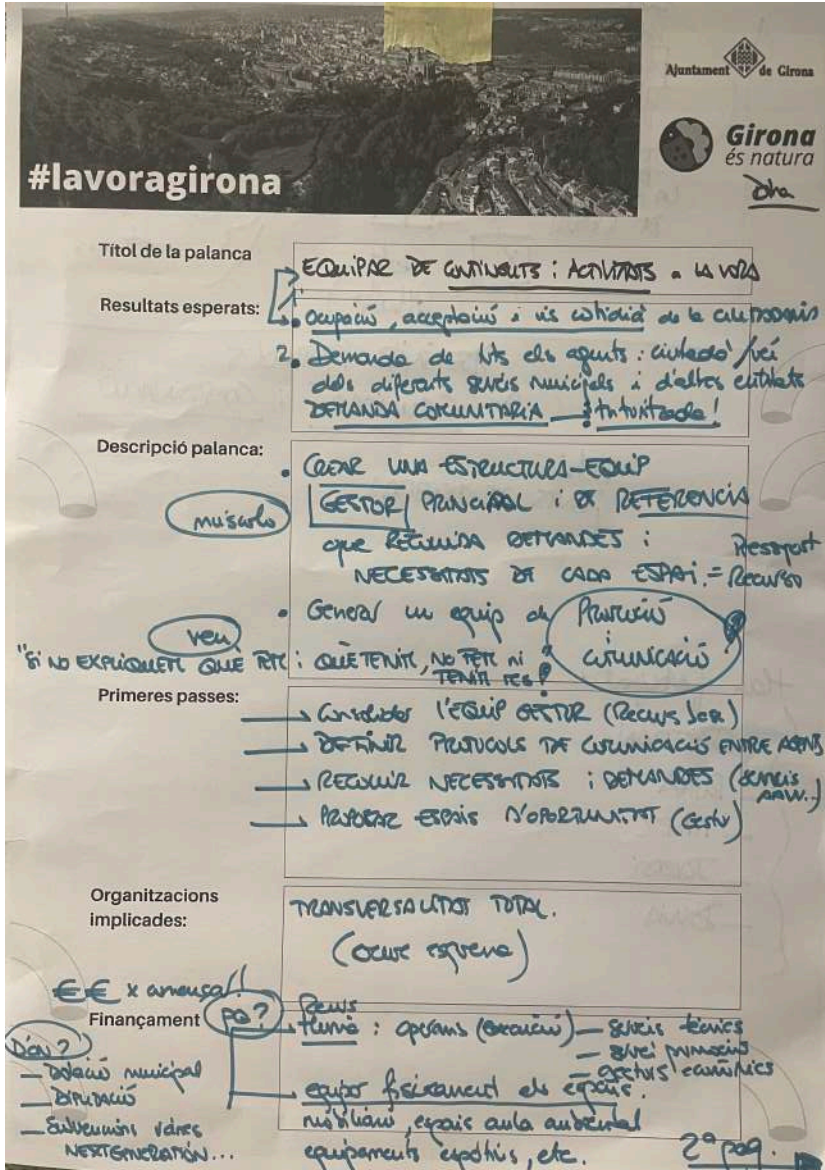 Ajuntament de Girona
Girona
és natura
#lavoragirona
Títol de la palanca
EQUIPAR DE CONTINGUTS i ACTIVITATS a LA VORA
Resultats esperats:
1. Ocupació, acceptació i ús cotidià de la ciutadania
2. Demanda de tots els agents: ciutadà/veí
dels diferents serveis municipals i d'altres entitats
DEMANDA COMUNITÀRIA
Descripció palanca:
• CREAR UNA ESTRUCTURA-EQUIP
GESTOR PRINCIPAL i DE REFERENCIA
múscul
que RECULLI DEMANDES i
NECESSITATS DE CADA ESPAI. = Recurs
• Generar un equip de Promoció
i
comunicació
veu
"SI NO EXPLIQUEM QUÈ FEM i QUÈ TENIM, NO FEM ni
TENIM RES!
Primeres passes:
Consolidar l'EQUIP GESTOR
DEFINIR PROTOCOLS DE COMUNICACIÓ ENTRE AGENTS
RECOLLIR NECESSITATS i DEMANDES (SERVEIS
AAVV..)
PROPOSAR ESPAIS D'OPORTUNITAT (Gestor)
Organitzacions
implicades:
TRANSVERSALITAT TOTAL.
€€ x
Finançament
pq?
Recurs
Humà: operaris (execució) — serveis tècnics
— servei promoció
— gestors
D'on?
— Dotació municipal
— DIPUTACIÓ
— Subvencions vàries
NEXTGENERATION...
equipar físicament els espais.
mobiliari, espais aula ambiental
equipaments esportius, etc.
2ª pag.